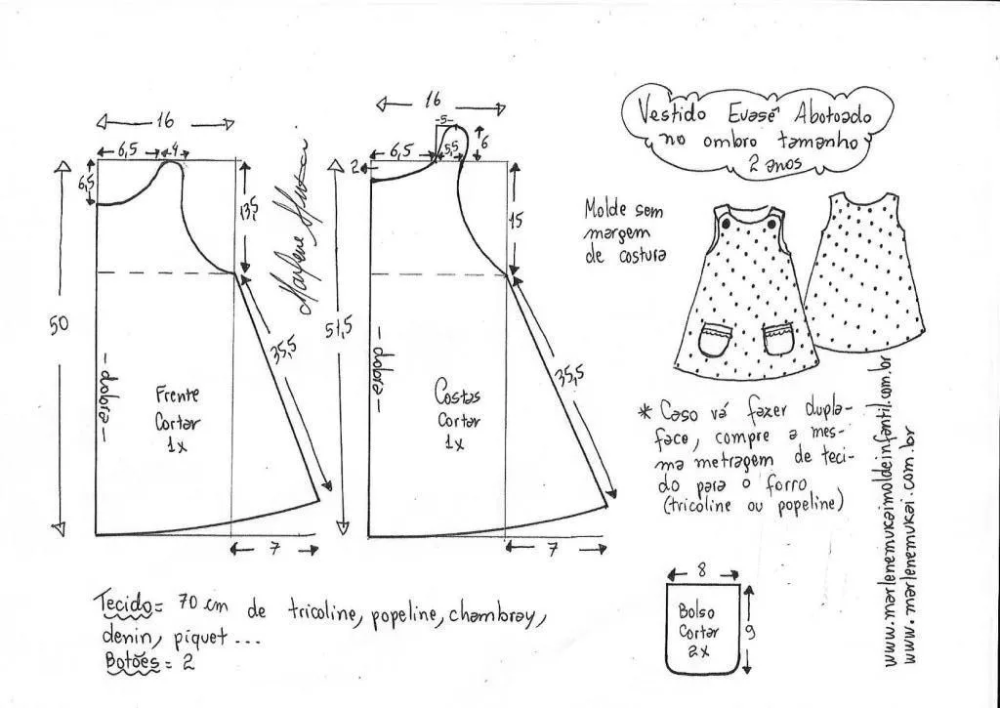 Vestido Evasê Abotoado
no ombro tamanho
2 anos
Molde sem
margem
de costura
16
6,5
4
6,5
13,5
50
35,5
dobra
Frente
Cortar
1x
7
Marlene Mukai
16
5
6,5
5,5
6
2
15
51,5
35,5
dobra
Costas
Cortar
1x
7
* Caso vá fazer dupla-
face, compre a mes-
ma metragem de teci-
do para o forro
(tricoline ou popeline)
8
Bolso
Cortar
2x
9
Tecido= 70 cm de tricoline, popeline, chambray,
denin, píquet ...
Botões = 2
www.marlenemukaimoldeinfantil.com.br
www.marlenemukai.com.br